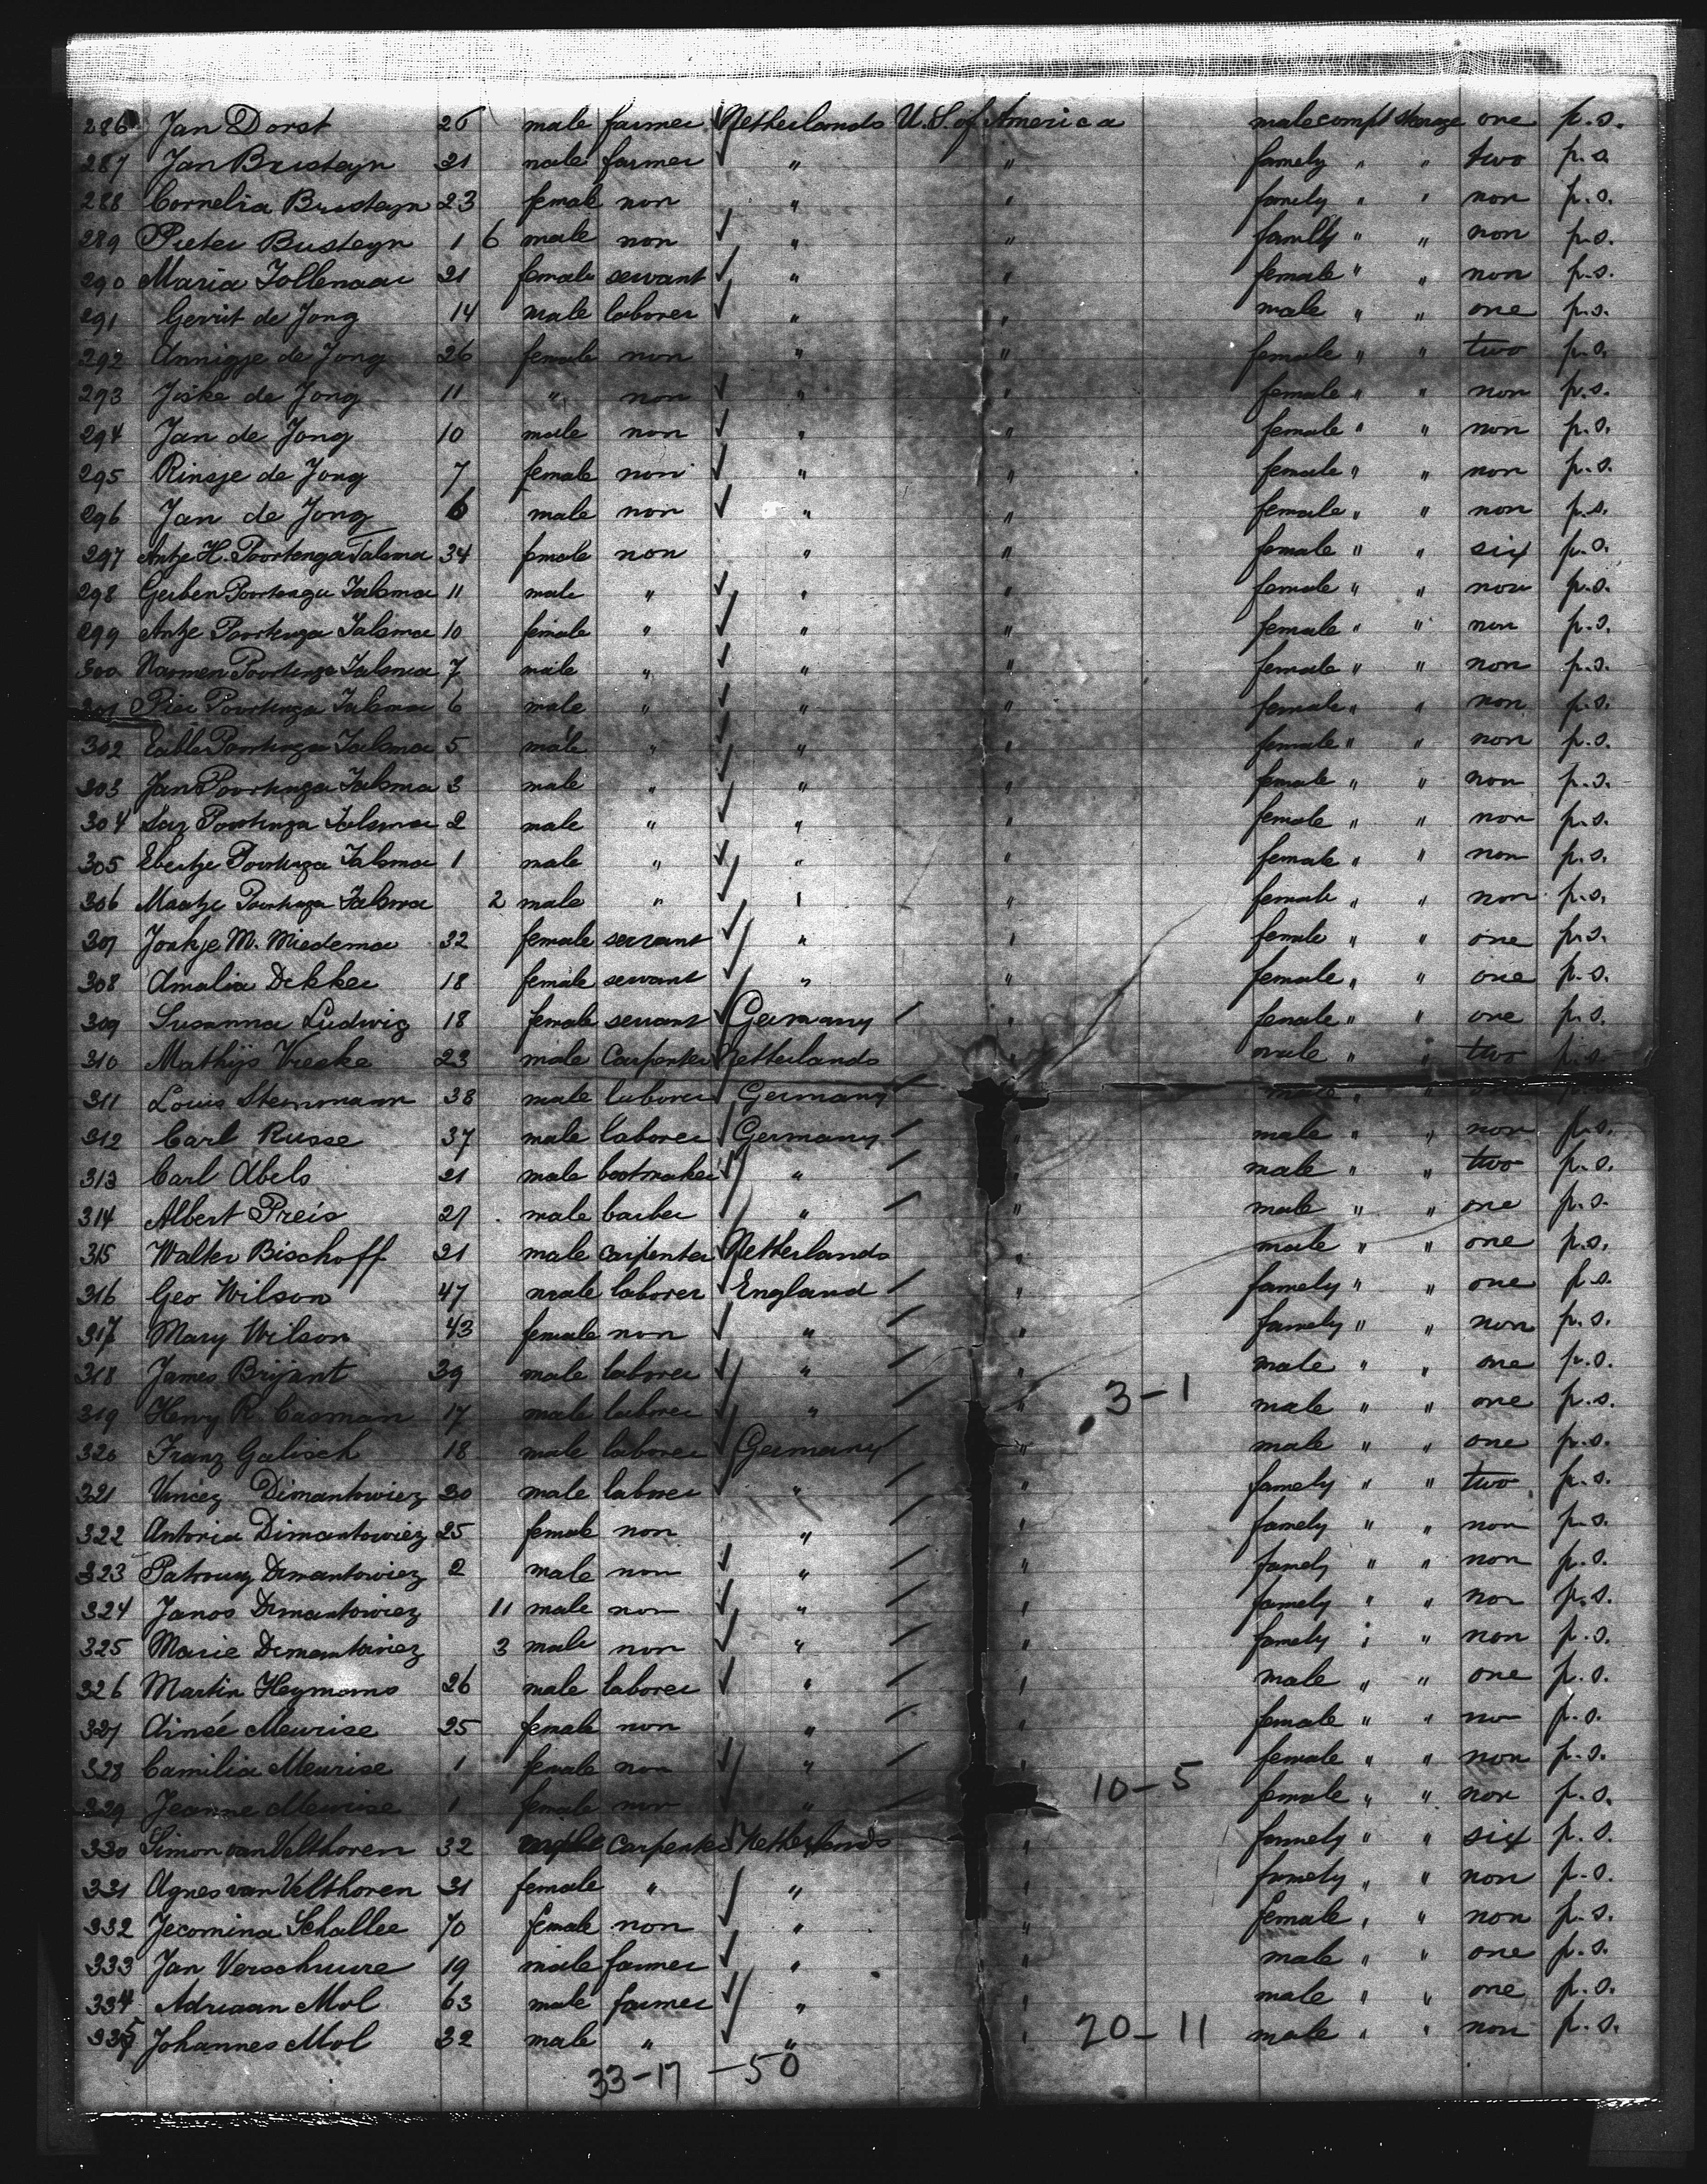 286 Jan Dorst 26 male farmer Netherlands U.S. of America male compt steerage one p.s.
287 Jan Busteyn 31 male farmer " " famely " " two p.s.
288 Cornelia Busteyn 23 female non " " famely " " non p.s.
289 Pieter Busteyn 1 6 male non " " family " " non p.s.
290 Maria Tollenaar 21 female servant " " female " " non p.s.
291 Gerrit de Jong 14 male laborer " " male " " one p.s.
292 Annigje de Jong 26 female non " " female " " two p.s.
293 Jiske de Jong 11 " non " " female " " non p.s.
294 Jan de Jong 10 male non " " female " " non p.s.
295 Rinsje de Jong 7 female non " " female " " non p.s.
296 Jan de Jong 6 male non " " female " " non p.s.
297 Antje H. Poortenga Talsma 34 female non " " female " " six p.s.
298 Gerben Poortenga Talsma 11 male " " " female " " non p.s.
299 Antje Poortenga Talsma 10 female " " " female " " non p.s.
300 Poortenga Talsma 7 male " " " female " " non p.s.
301 Pier Poortenga Talsma 6 male " " " female " " non p.s.
302 Poortenga Talsma 5 male " " " female " " non p.s.
303 Jan Poortenga Talsma 3 male " " " female " " non p.s.
304 Poortenga Talsma 2 male " " " female " " non p.s.
305 Ebeltje Poortenga Talsma 1 male " " " female " " non p.s.
306 Maatje Poortenga Talsma 2 male " " " female " " non p.s.
307 Joukje M. Miedema 32 female servant " " female " " one p.s.
308 Amalia Dekker 18 female servant " " female " " one p.s.
309 Susanna Ludwig 18 female servant Germany " female " " one p.s.
310 Mathijs Vreeke 23 male Carpenter Netherlands male " " two p.s.
311 Louis Stemmann 38 male laborer Germany male " " one
312 Carl Russe 37 male laborer Germany " male " " non p.s.
313 Carl Abels 21 male bootmaker " male " " two p.s.
314 Albert Preis 27 male barber " " male " " one p.s.
315 Walter Bischoff 21 male carpenter Netherlands " male " " one p.s.
316 Geo Wilson 47 male laborer England " famely " " one p.s.
317 Mary Wilson 43 female non " " famely " " non p.s.
318 James Brijant 39 male laborer " " male " " one p.s.
3-1
319 Henry R. Casman 17 male laborer " male " " one p.s.
320 Franz Galisch 18 male laborer Germany " male " " one p.s.
321 Vincez Dimantowiez 30 male laborer " " famely " " two p.s.
322 Antonia Dimantowiez 25 female non " " famely " " non p.s.
323 Dimantowiez 2 male non " " famely " " non p.s.
324 Janos Dimantowiez 11 male non " " famely " " non p.s.
325 Marie Dimantowiez 3 male non " " famely " " non p.s.
326 Martin Heymans 26 male laborer " " male " " one p.s.
327 Aimée Meurise 25 female non " " female " " no p.s.
328 Camilia Meurise 1 female non " " female " " non p.s.
10-5
329 Jeanne Meurise 1 female non " female " " non p.s.
330 Simon van Velthoven 32 male carpenter Netherlands " famely " " six p.s.
331 Agnes van Velthoven 31 female " " " famely " " non p.s.
332 Jecomina Schallee 70 female non " " female " " non p.s.
333 Jan Verschuure 19 male farmer " " male " " one p.s.
334 Adriaan Mol 63 male farmer " " male " " one p.s.
335 Johannes Mol 32 male " " " 20-11 male " " non p.s.
33-17 -50